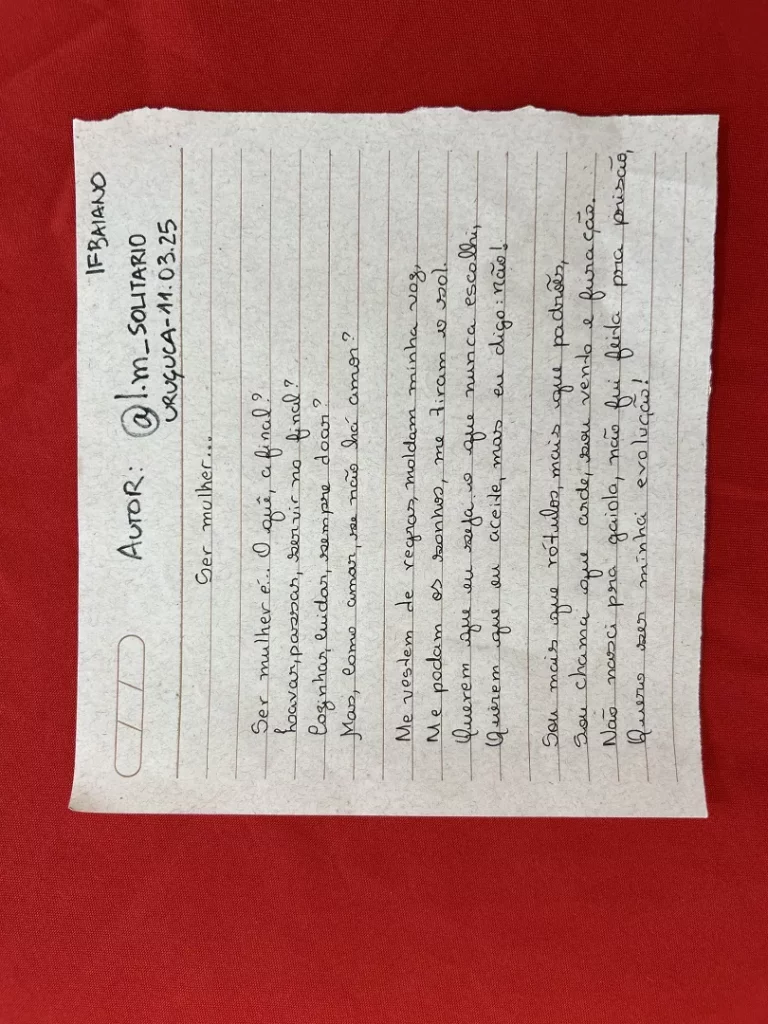 IFBAIANO
AUTOR: @l.m_SOLITARIO
URUÇUCA-11.03.25
Ser mulher...
Ser mulher é... O quê, afinal?
Lavar, passar, servir no final?
Cozinhar, cuidar, sempre doar?
Mas, como amar, se não há amor?
Me vestem de regras, moldam minha voz,
Me podam os sonhos, me tiram o sol.
Querem que eu seja o que nunca escolhi,
Querem que eu aceite, mas eu digo: não!
Sou mais que rótulos, mais que padrões,
Sou chama que arde, sou vento e furacão.
Não nasci pra gaiola, não fui feita pra prisão,
Quero ser minha evolução!